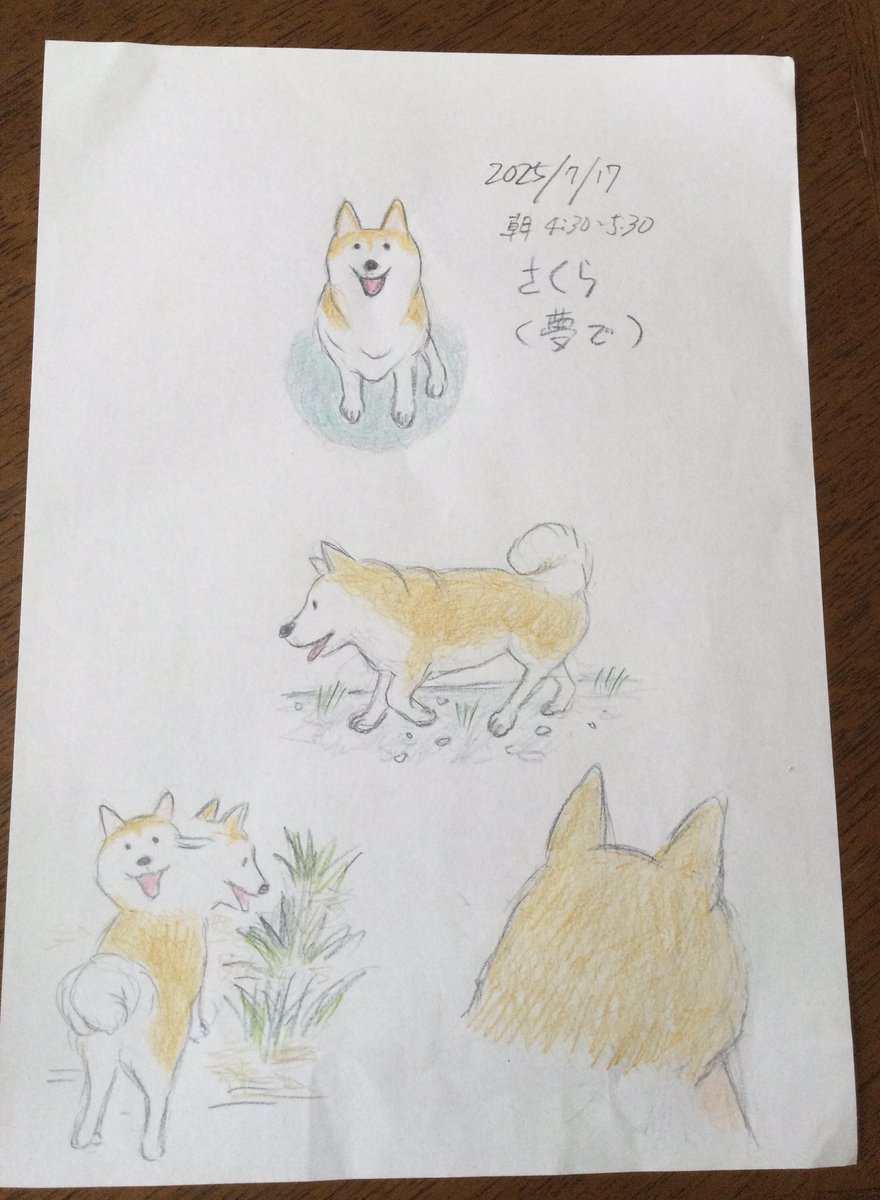 2025/7/17
朝 4:30~5:30
さくら
(夢で)